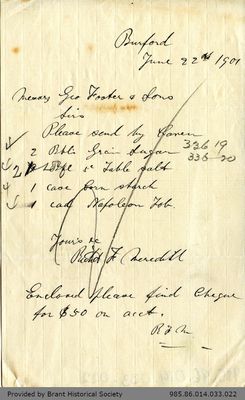 Burford
June 22nd 1901
Messrs Geo Foster & Sons
Sirs
Please send by
2 Bbls Gran Sugar 336 19
336 20
2 Table Salt
1 case Corn starch
1 cad Napoleon Tob
Yours &c
F. Meredith
Enclosed please find Cheque
for $50 on acct.
R F M
Provided by Brant Historical Society 985.86.014.033.022